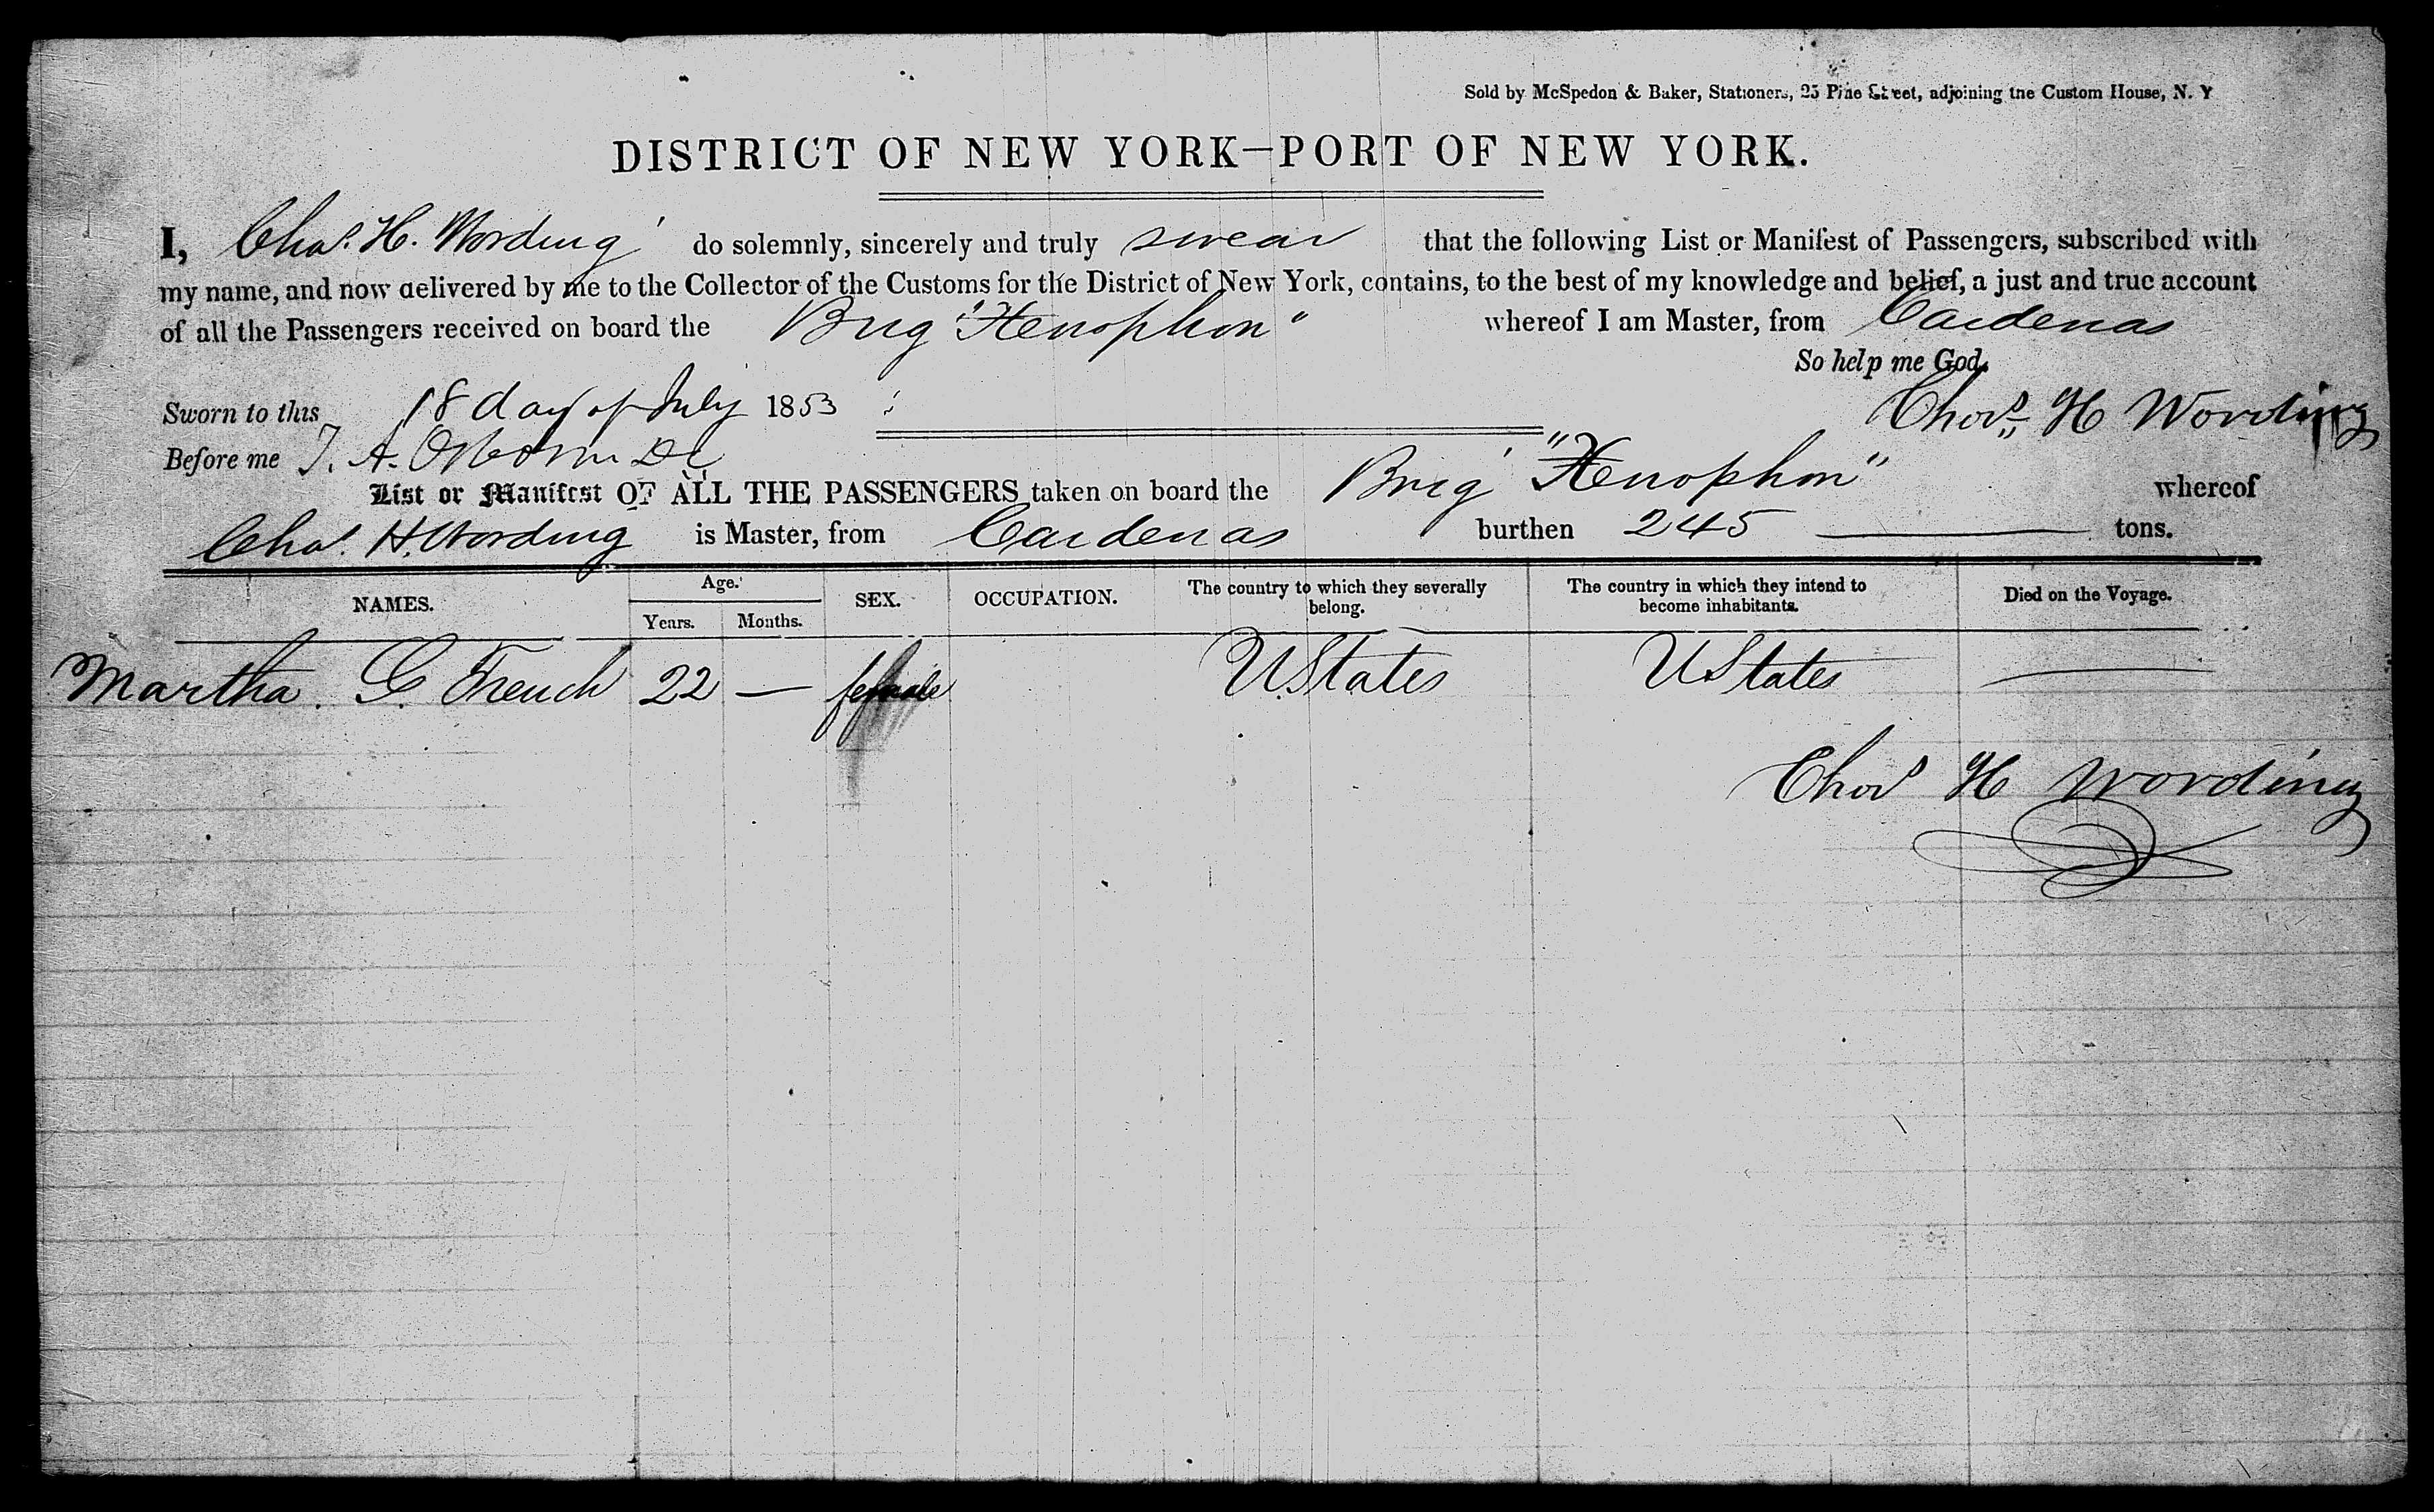 Sold by McSpedon & Baker, Stationers, 25 Pine Street, adjoining the Custom House, N. Y
DISTRICT OF NEW YORK—PORT OF NEW YORK.
I, Chas. H. Wording do solemnly, sincerely and truly swear that the following List or Manifest of Passengers, subscribed with
my name, and now delivered by me to the Collector of the Customs for the District of New York, contains, to the best of my knowledge and belief, a just and true account
of all the Passengers received on board the Brig "Xenophon" whereof I am Master, from Cardenas
So help me God.
Sworn to this 18 day of July 1853
Chas. H Wording
Before me J. A. Osborn DC
List or Manifest OF ALL THE PASSENGERS taken on board the Brig "Xenophon" whereof
Chas. H. Wording is Master, from Cardenas burthen 245 — tons.
NAMES. Age. Years. Months. SEX. OCCUPATION. The country to which they severally belong. The country in which they intend to become inhabitants. Died on the Voyage.
Martha. G. French 22 — female U.States UStates —
Chas H Wording